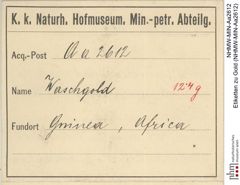 K. k. Naturh. Hofmuseum. Min.-petr. Abteilg.
Acq.-Post Aa 2612
Name Waschgold 124 g
Fundort Guinea, Africa
NHMW-MIN-Aa2612
Etiketten zu Gold (NHMW-MIN-Aa2612)
nhm